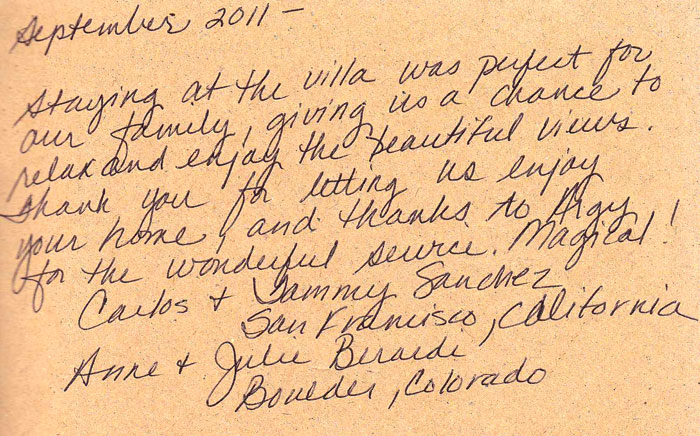 September 2011 -
Staying at the villa was perfect for
our family, giving us a chance to
relax and enjoy the beautiful views.
Thank you for letting us enjoy
your home, and thanks to Argy
for the wonderful service. Magical!
Carlos + Tammy Sanchez
San Francisco, California
Anne + Julie Berarde
Boulder, Colorado